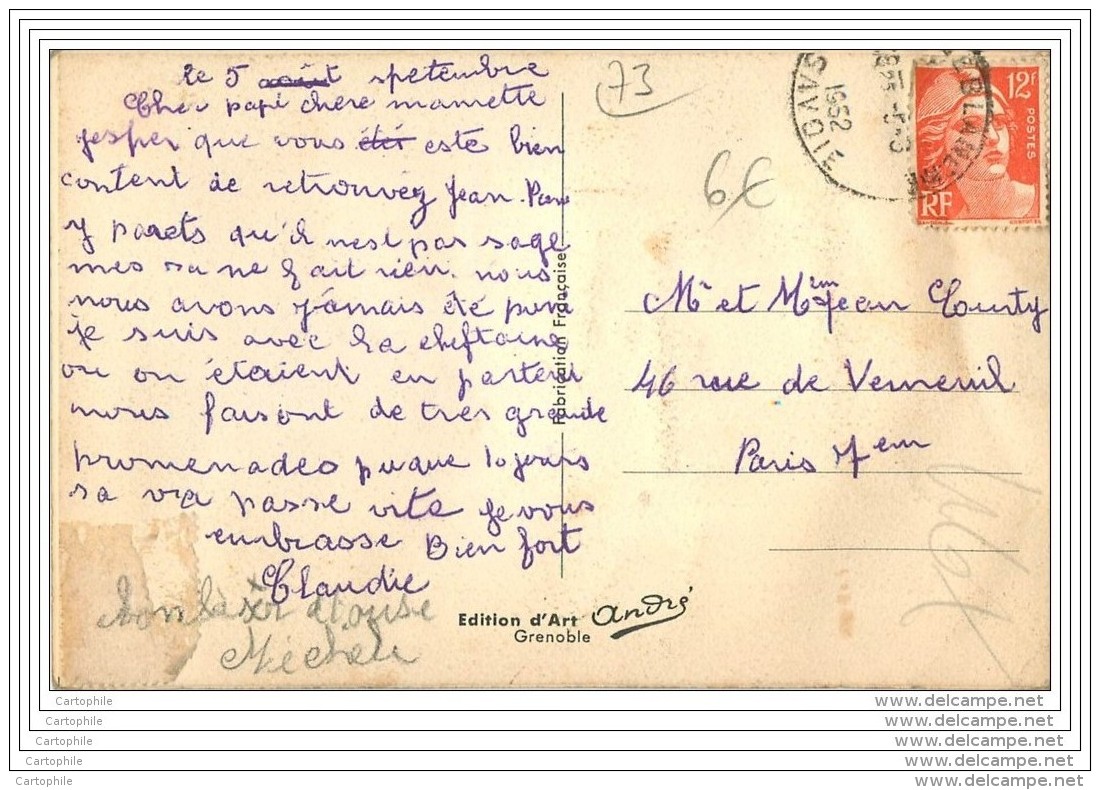 le 5 août spetembre
Cher papi chere mamette
jesper que vous été este bien
content de retrouvez Jean-Pau
y parets qu'il n'est pas sage
mes sa ne fait rien. nous
nous avons jamais été puni
je suis avec la cheftaine
ou on étaient en parten
nous faisont de tres grande
promenades puque 10 jours
sa va passe vite je vous
embrasse Bien fort
Claudie
Bon
Michele
Edition d'Art André
Grenoble
Fabrication Française
73
6€
SAVOIE
1952
12F
POSTES
RF
Mr et Mme Jean County
46 rue de Verneuil
Paris 7em
Cartophile
Cartophile
Cartophile
Cartophile
Cartophile
www.delcampe.net
www.delcampe.net
www.delcampe.net
www.delcampe.net
www.delcampe.net